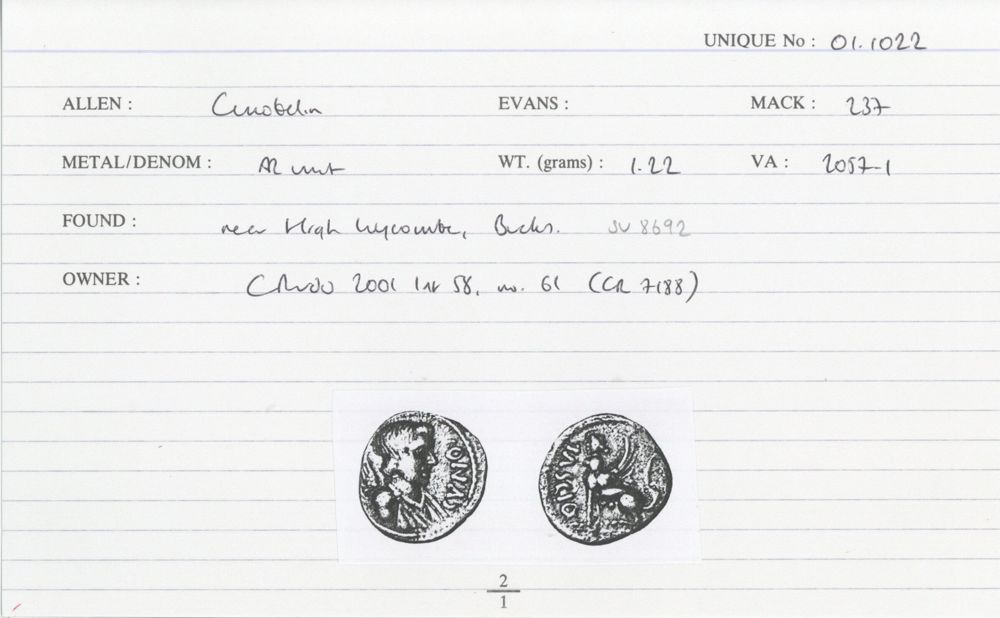 UNIQUE No : 01.1022
ALLEN : Cunobelin EVANS : MACK : 237
METAL/DENOM : AR unit WT. (grams) : 1.22 VA : 2057-1
FOUND : near High Wycombe, Bucks. SU 8692
OWNER : 2001 58, no. 61 (CR 7188)
2
1